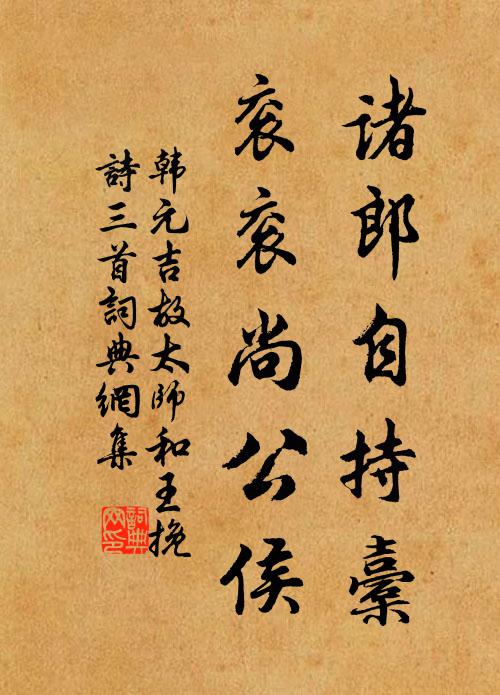 诸郎自持橐
衮衮尚公侯
韩元吉故太师和王挽
詩三首詞典網集